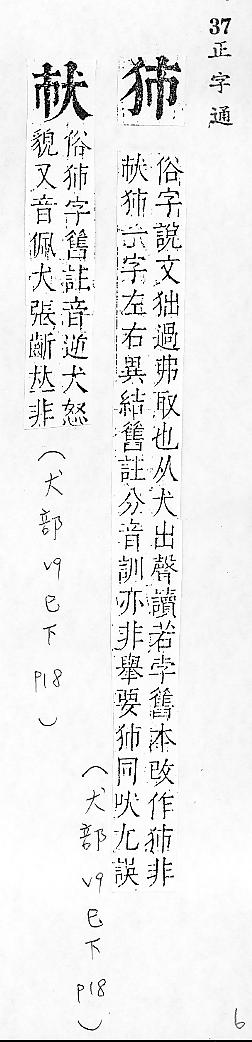 37
正字通
犻
俗字說文過弗取也从犬出聲讀若孛舊本改作犻非
犻二字左右異結舊註分音訓亦非舉要犻同吠尤誤
(犬部 V9 巳下 P18)
俗犻字舊註音犬怒
貌又音佩犬張齗𠀤非
(犬部 V9 巳下 P18)
6